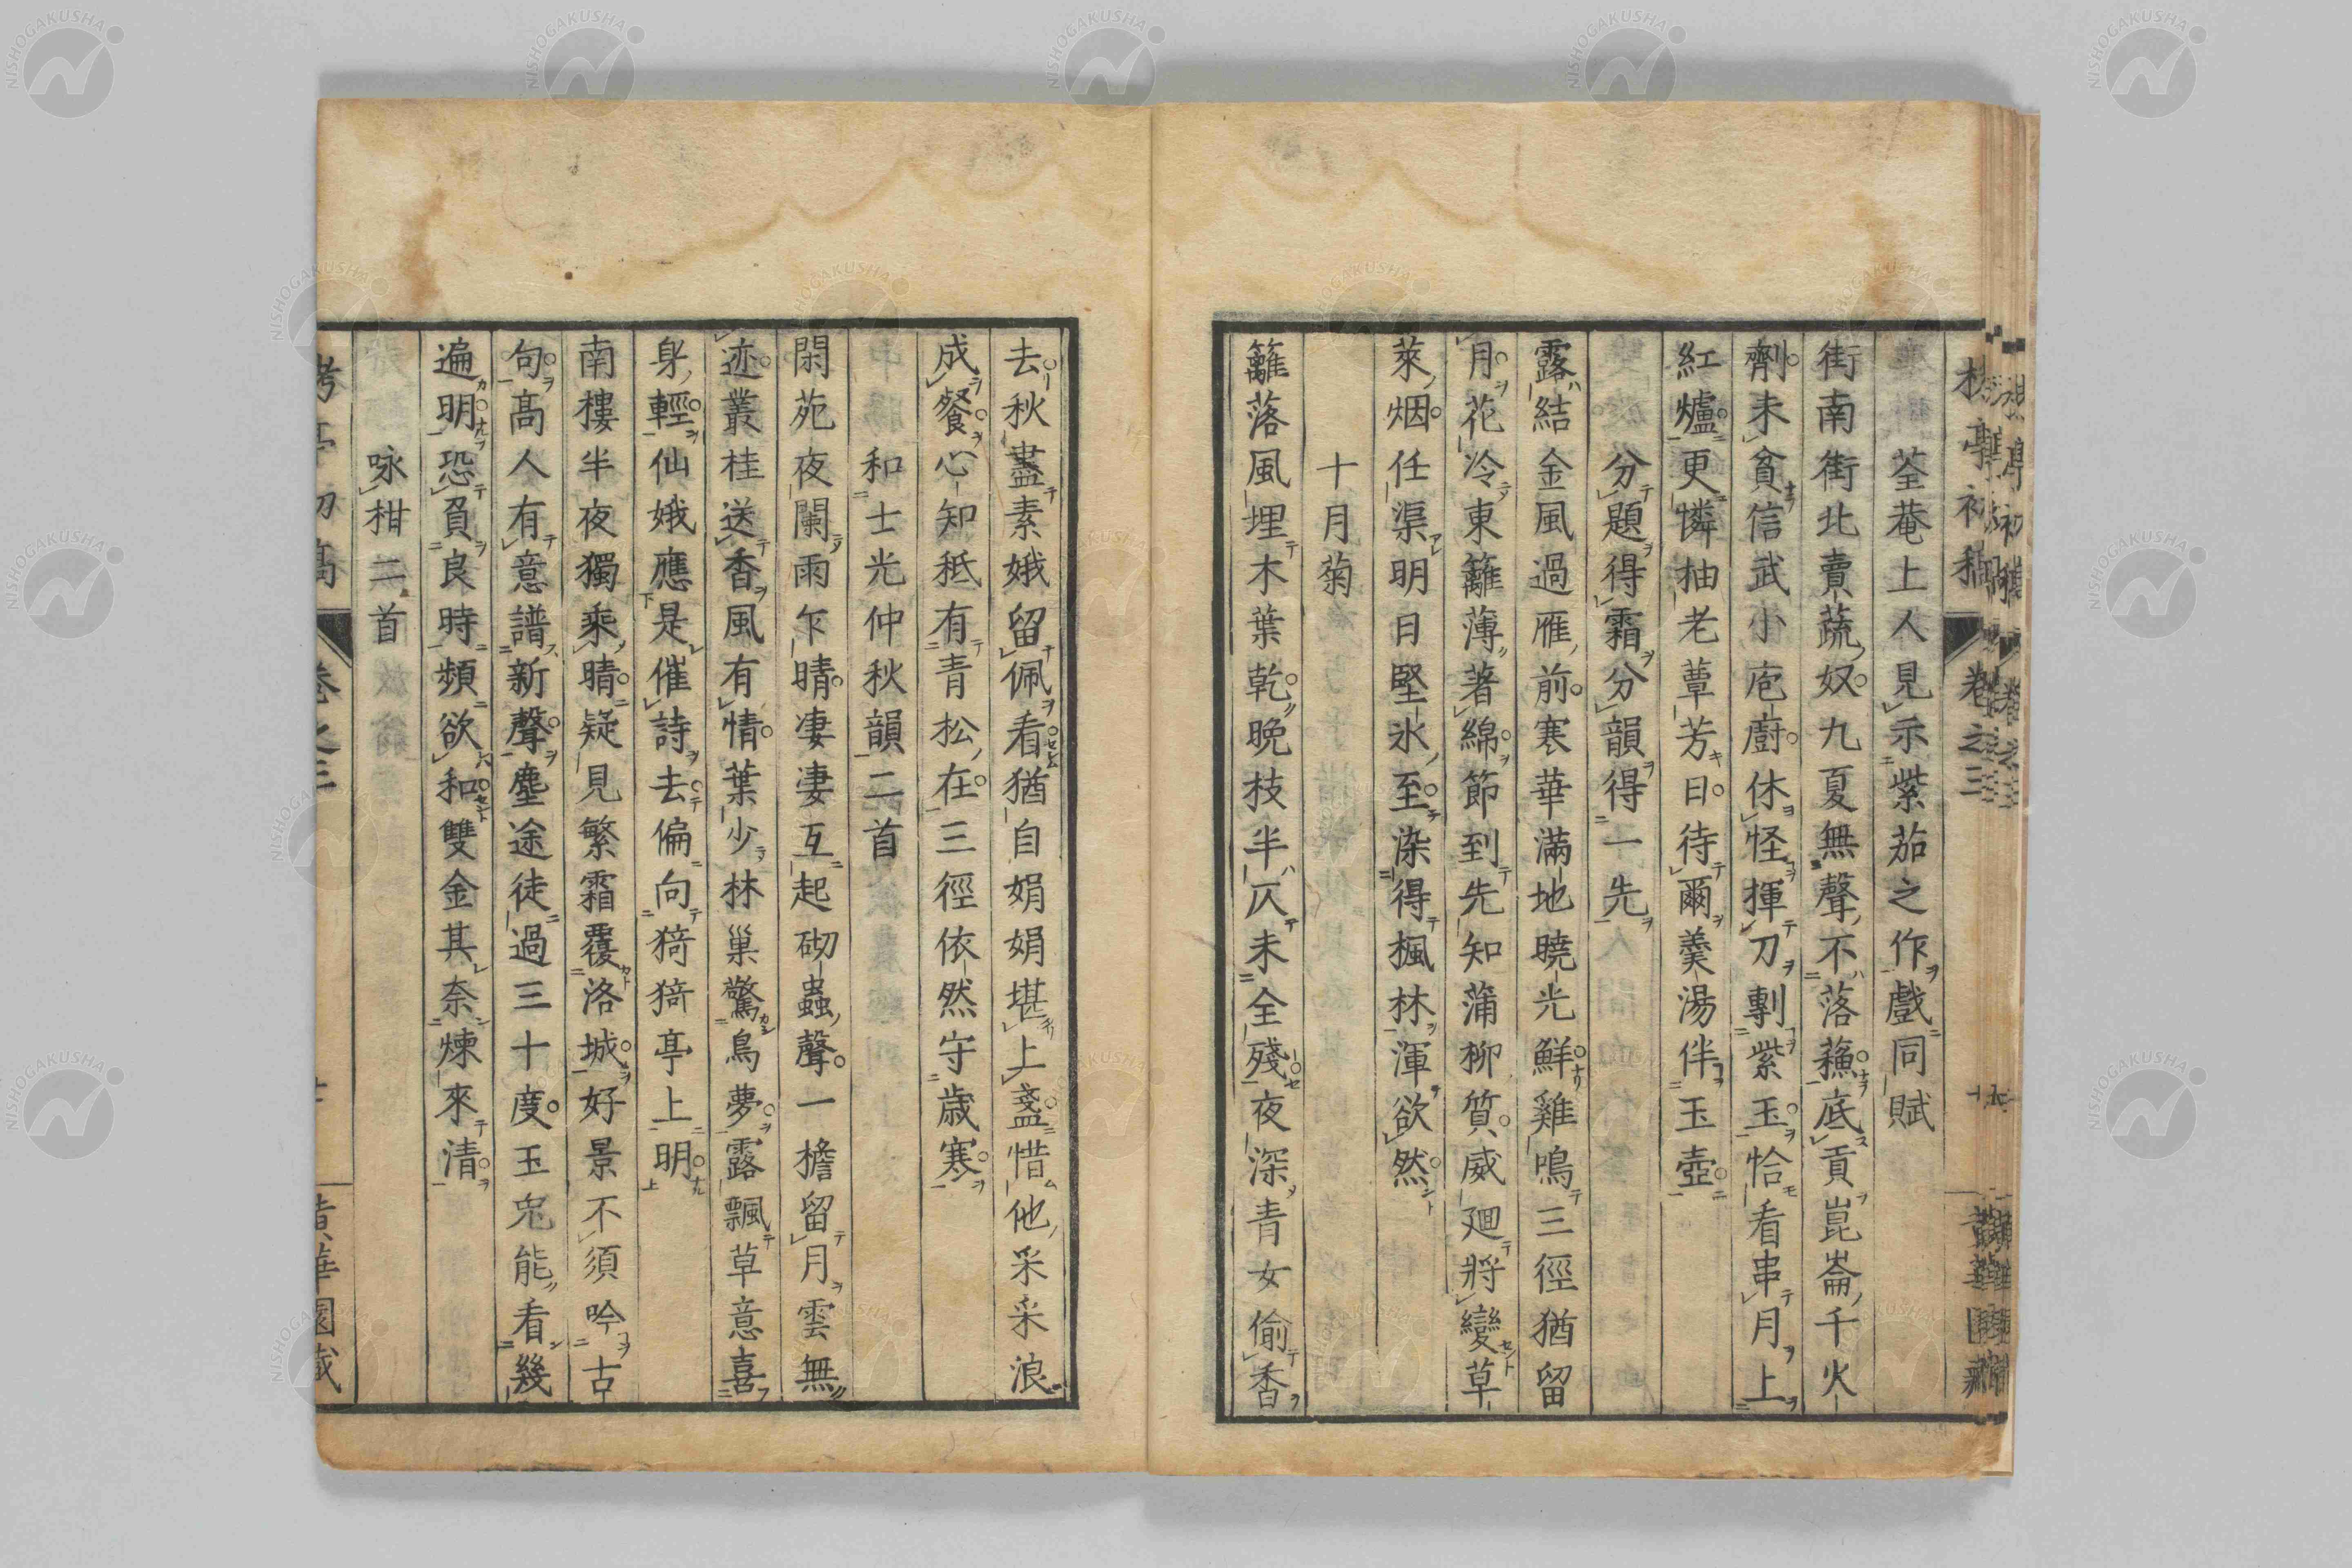 荃菴上人見示紫茄之作戲同賦
街南街北賣蔬奴九夏無聲不落蘓底貢崑崙千火
劑未貧信武小庖廚休怪揮刀剸紫玉恰看串月上
紅爐更憐柚老蕈芳日待爾羹湯伴玉壺
分題得霜分韻得一先
露結金風過雁前寒華滿地曉光鮮雞鳴三徑猶留
月花冷東籬薄著綿節到先知蒲柳質威廻將變草
萊烟任渠明日堅氷至染得楓林渾欲然
十月菊
籬落風埋木葉乾晚枝半仄未全殘夜深青女偷香
去秋盡素娥留佩看猶自娟娟堪上盞惜他采采浪
成餐心知秪有青松在三徑依然守歲寒
和士光仲秋韻二首
閑苑夜闌雨乍晴凄凄互起砌蟲聲一檐留月雲無
迹叢桂送香風有情葉少林巢驚鳥夢露飄草意喜
身輕仙娥應是催詩去偏向猗猗亭上明
南樓半夜獨乘晴疑見繁霜覆洛城好景不須吟古
句髙人有意譜新聲塵途徒過三十度玉兔能看幾
遍明恐負良時頻欲和雙金其奈煉來清
咏柑二首